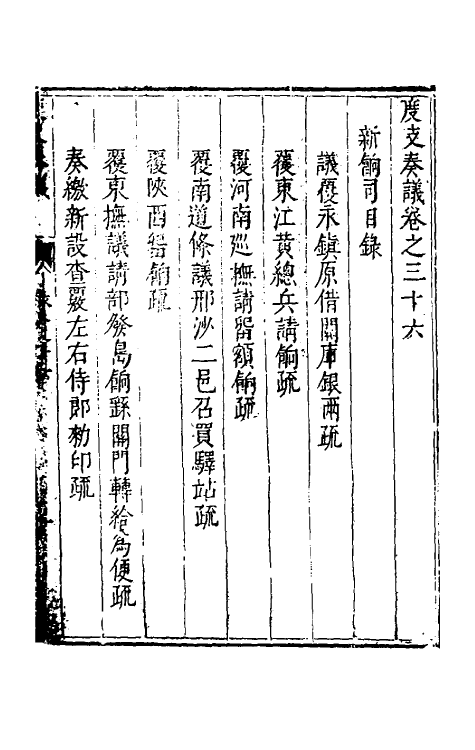 度支奏議卷之三十六
新餉司目錄
議覆永鎮原借關庫銀兩疏
覆東江黃總兵請餉疏
覆河南巡撫請留額餉疏
覆南道條議邢沙二邑召買驛站疏
覆陝西留餉疏
覆東撫議請部發島餉繇關門轉給為便疏
奏繳新設查覈左右侍郎勑印疏